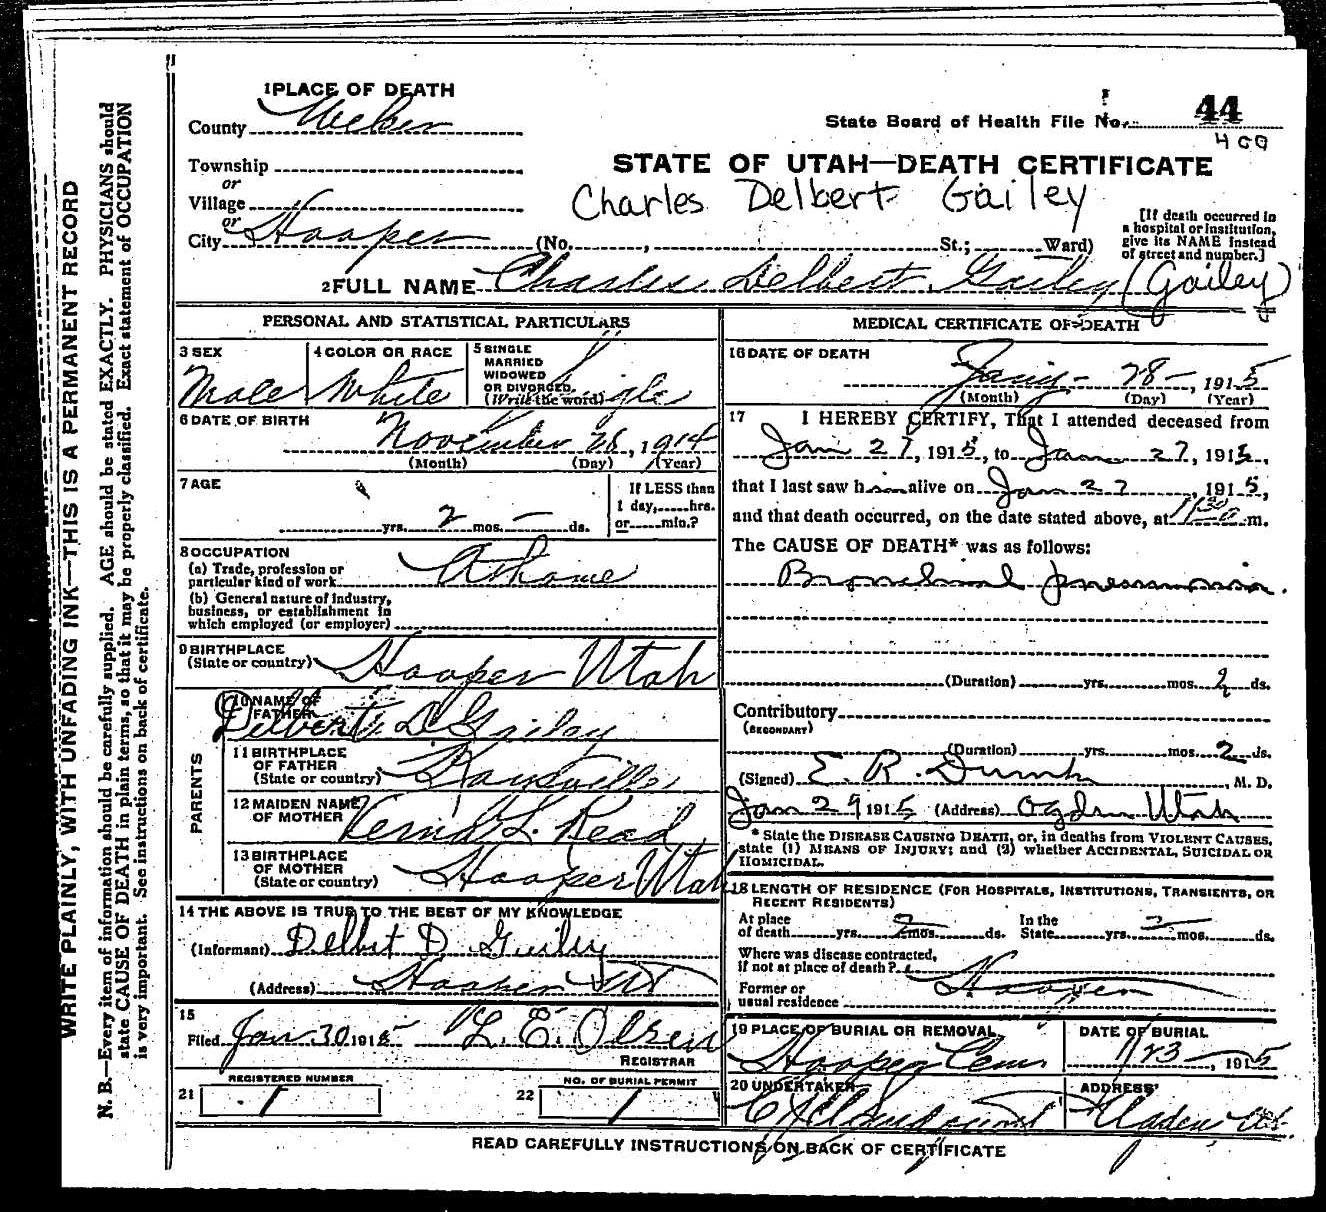 1 PLACE OF DEATH
County Weber
State Board of Health File No. 44
400
Township
or
Village
or
City Hooper (No. , St.; Ward)
STATE OF UTAH—DEATH CERTIFICATE
Charles Delbert Gailey
[If death occurred in
a hospital or institution,
give its NAME instead
of street and number.]
2 FULL NAME Charles Delbert Gailey (Gailey)
PERSONAL AND STATISTICAL PARTICULARS
3 SEX
Male
4 COLOR OR RACE
White
5 SINGLE
MARRIED
WIDOWED
OR DIVORCED.
(Write the word) Single
6 DATE OF BIRTH
November 28, 1914
(Month) (Day) (Year)
7 AGE
yrs. 2 mos. — ds.
If LESS than
1 day, hrs.
or min.?
8 OCCUPATION
(a) Trade, profession or
particular kind of work At home
(b) General nature of industry,
business, or establishment in
which employed (or employer)
9 BIRTHPLACE
(State or country) Hooper Utah
PARENTS
10 NAME OF
FATHER Delbert D Gailey
11 BIRTHPLACE
OF FATHER
(State or country) Kaysville
12 MAIDEN NAME
OF MOTHER L. Read
13 BIRTHPLACE
OF MOTHER
(State or country) Hooper Utah
14 THE ABOVE IS TRUE TO THE BEST OF MY KNOWLEDGE
(Informant) Delbert D Gailey
(Address) Hooper Ut
15
Filed Jan 30 1915 L. E. Olsen
REGISTRAR
21 REGISTERED NUMBER
1
22 NO. OF BURIAL PERMIT
1
MEDICAL CERTIFICATE OF DEATH
16 DATE OF DEATH
Jany - 28 -, 1915
(Month) (Day) (Year)
17 I HEREBY CERTIFY, That I attended deceased from
Jan 27, 1915, to Jan 27, 1915,
that I last saw him alive on Jan 27, 1915,
and that death occurred, on the date stated above, at 11 30 m.
The CAUSE OF DEATH* was as follows:
Bronchial pneumonia.
(Duration) yrs. mos. 2 ds.
Contributory
(SECONDARY)
(Duration) yrs. mos. 2 ds.
(Signed) E. R. Dumke, M. D.
Jan 29 1915 (Address) Ogden Utah
* State the DISEASE CAUSING DEATH, or, in deaths from VIOLENT CAUSES,
state (1) MEANS OF INJURY; and (2) whether ACCIDENTAL, SUICIDAL OR
HOMICIDAL.
18 LENGTH OF RESIDENCE (FOR HOSPITALS, INSTITUTIONS, TRANSIENTS, OR
RECENT RESIDENTS)
At place
of death yrs. 2 mos. ds.
In the
State yrs. 2 mos. ds.
Where was disease contracted,
if not at place of death?
Former or
usual residence Hooper
19 PLACE OF BURIAL OR REMOVAL
Hooper Cem
DATE OF BURIAL
1915
20 UNDERTAKER
ADDRESS
Ogden, Ut.
READ CAREFULLY INSTRUCTIONS ON BACK OF CERTIFICATE
WRITE PLAINLY, WITH UNFADING INK—THIS IS A PERMANENT RECORD
N. B.—Every item of information should be carefully supplied. AGE should be stated EXACTLY. PHYSICIANS should
state CAUSE OF DEATH in plain terms, so that it may be properly classified. Exact statement of OCCUPATION
is very important. See instructions on back of certificate.